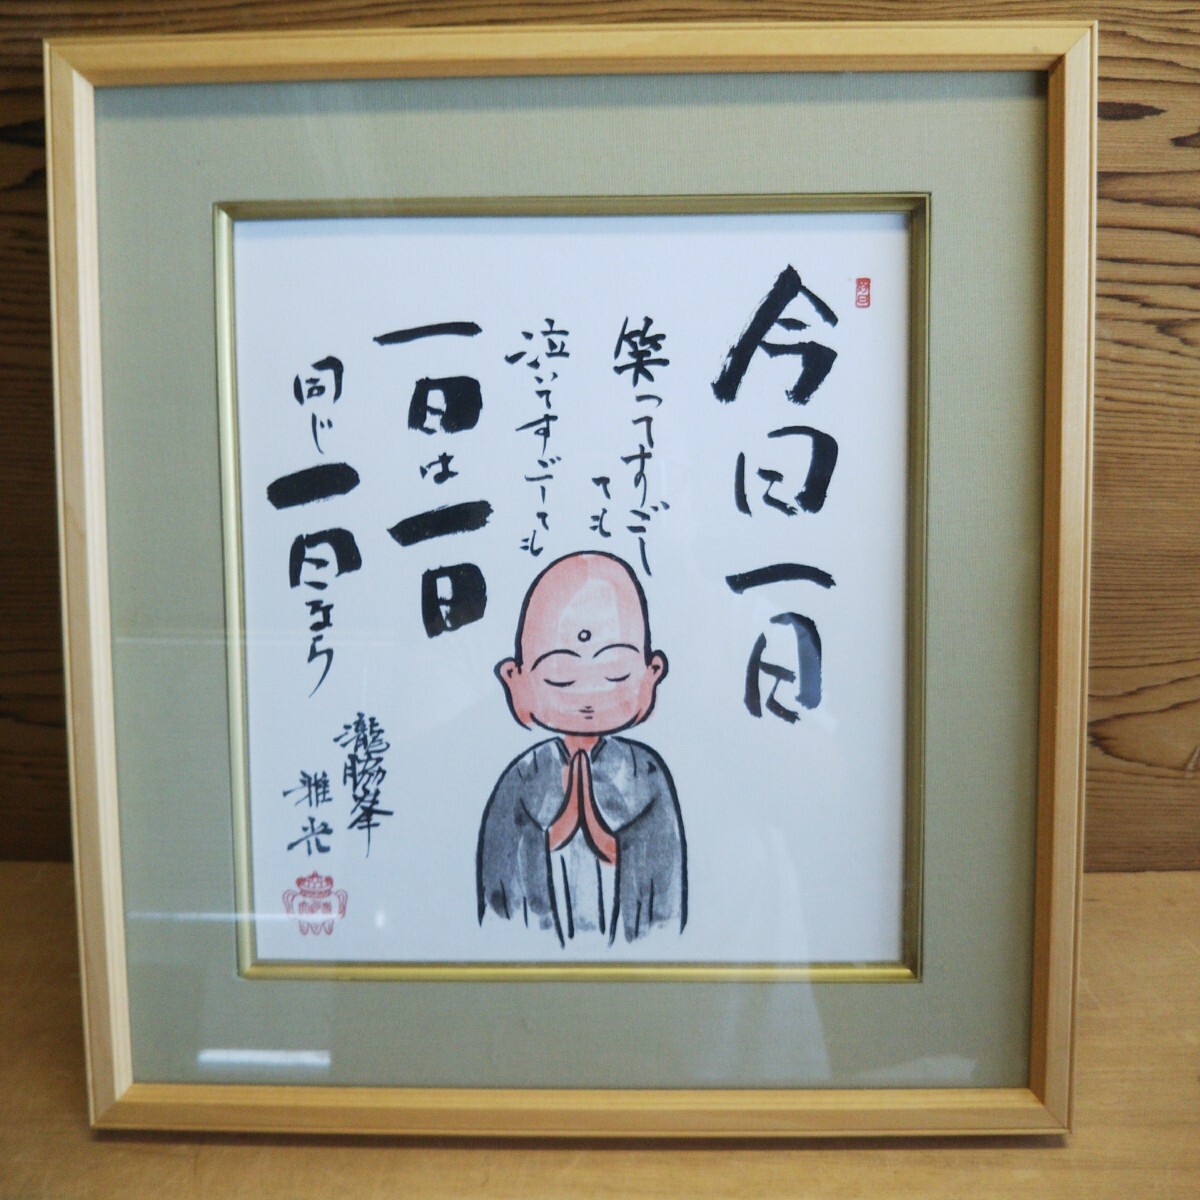 今日一日
笑ってすごし
ても
泣いてすごしても
一日は一日
同じ一日なら
瀧脇峯
雅光